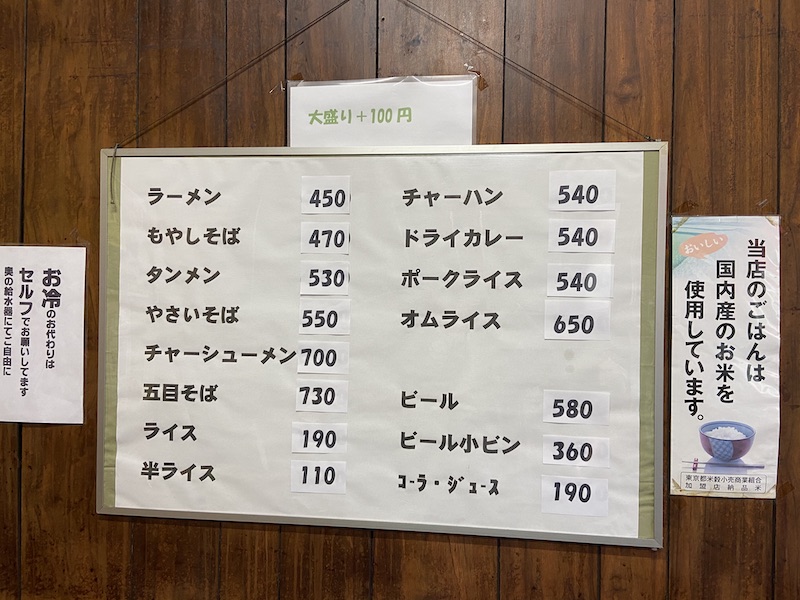 大盛り＋100円
ラーメン 450
もやしそば 470
タンメン 530
やさいそば 550
チャーシューメン 700
五目そば 730
ライス 190
半ライス 110
チャーハン 540
ドライカレー 540
ポークライス 540
オムライス 650
ビール 580
ビール小ビン 360
コーラ・ジュース 190
お冷のお代わりは
セルフでお願いしてます
奥の給水器にてご自由に
おいしい
当店のごはんは
国内産のお米を
使用しています。
東京都米穀小売商業組合
加盟店納品米